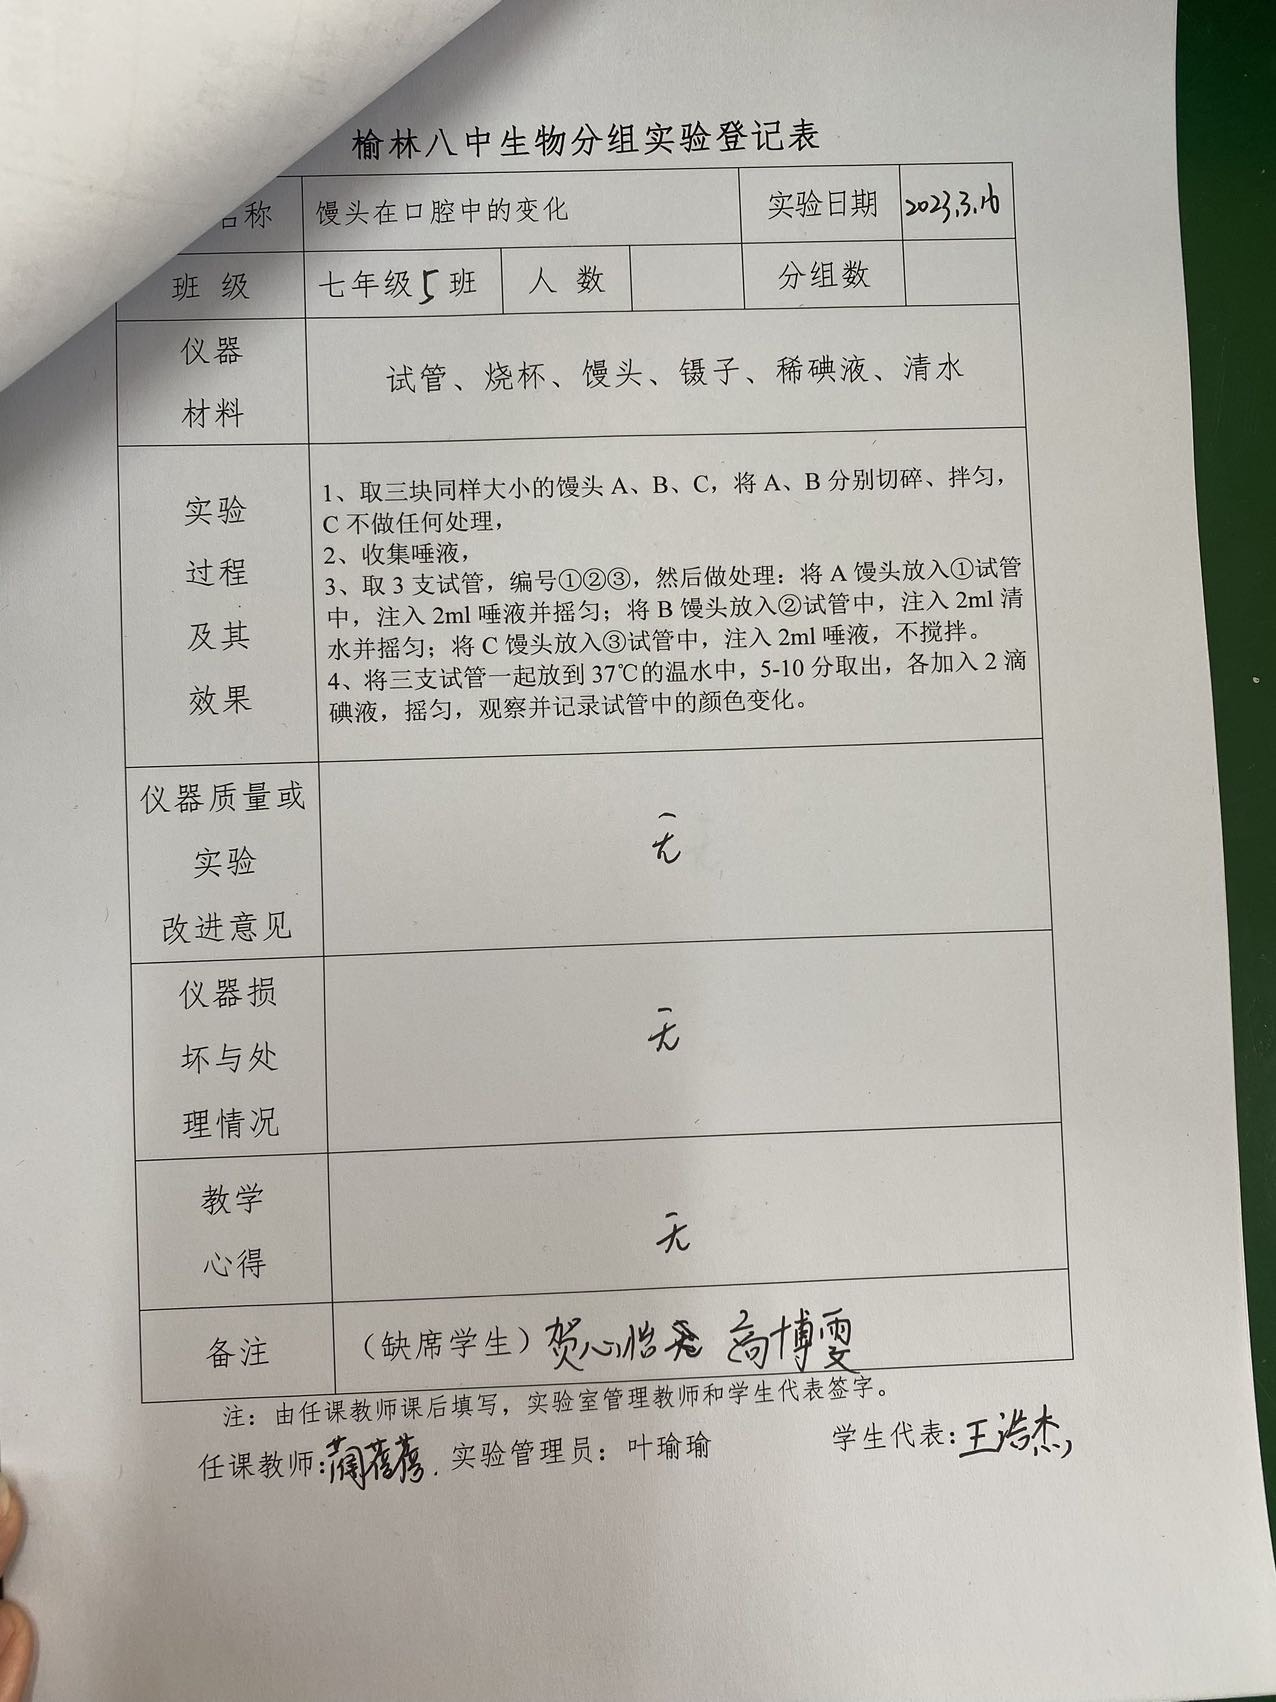 榆林八中生物分组实验登记表
名称 馒头在口腔中的变化 实验日期 2023.3.16
班 级 七年级5班 人 数 分组数
仪器
材料
试管、烧杯、馒头、镊子、稀碘液、清水
实验
过程
及其
效果
1、取三块同样大小的馒头 A、B、C，将 A、B 分别切碎、拌匀，
C 不做任何处理，
2、收集唾液，
3、取 3 支试管，编号①②③，然后做处理：将 A 馒头放入①试管
中，注入 2ml 唾液并摇匀；将 B 馒头放入②试管中，注入 2ml 清
水并摇匀；将 C 馒头放入③试管中，注入 2ml 唾液，不搅拌。
4、将三支试管一起放到 37℃的温水中，5-10 分取出，各加入 2 滴
碘液，摇匀，观察并记录试管中的颜色变化。
仪器质量或
实验
改进意见
无
仪器损
坏与处
理情况
无
教学
心得
无
备注 （缺席学生）贺心怡 高博雯
注：由任课教师课后填写，实验室管理教师和学生代表签字。
任课教师: 实验管理员：叶瑜瑜 学生代表:王浩杰